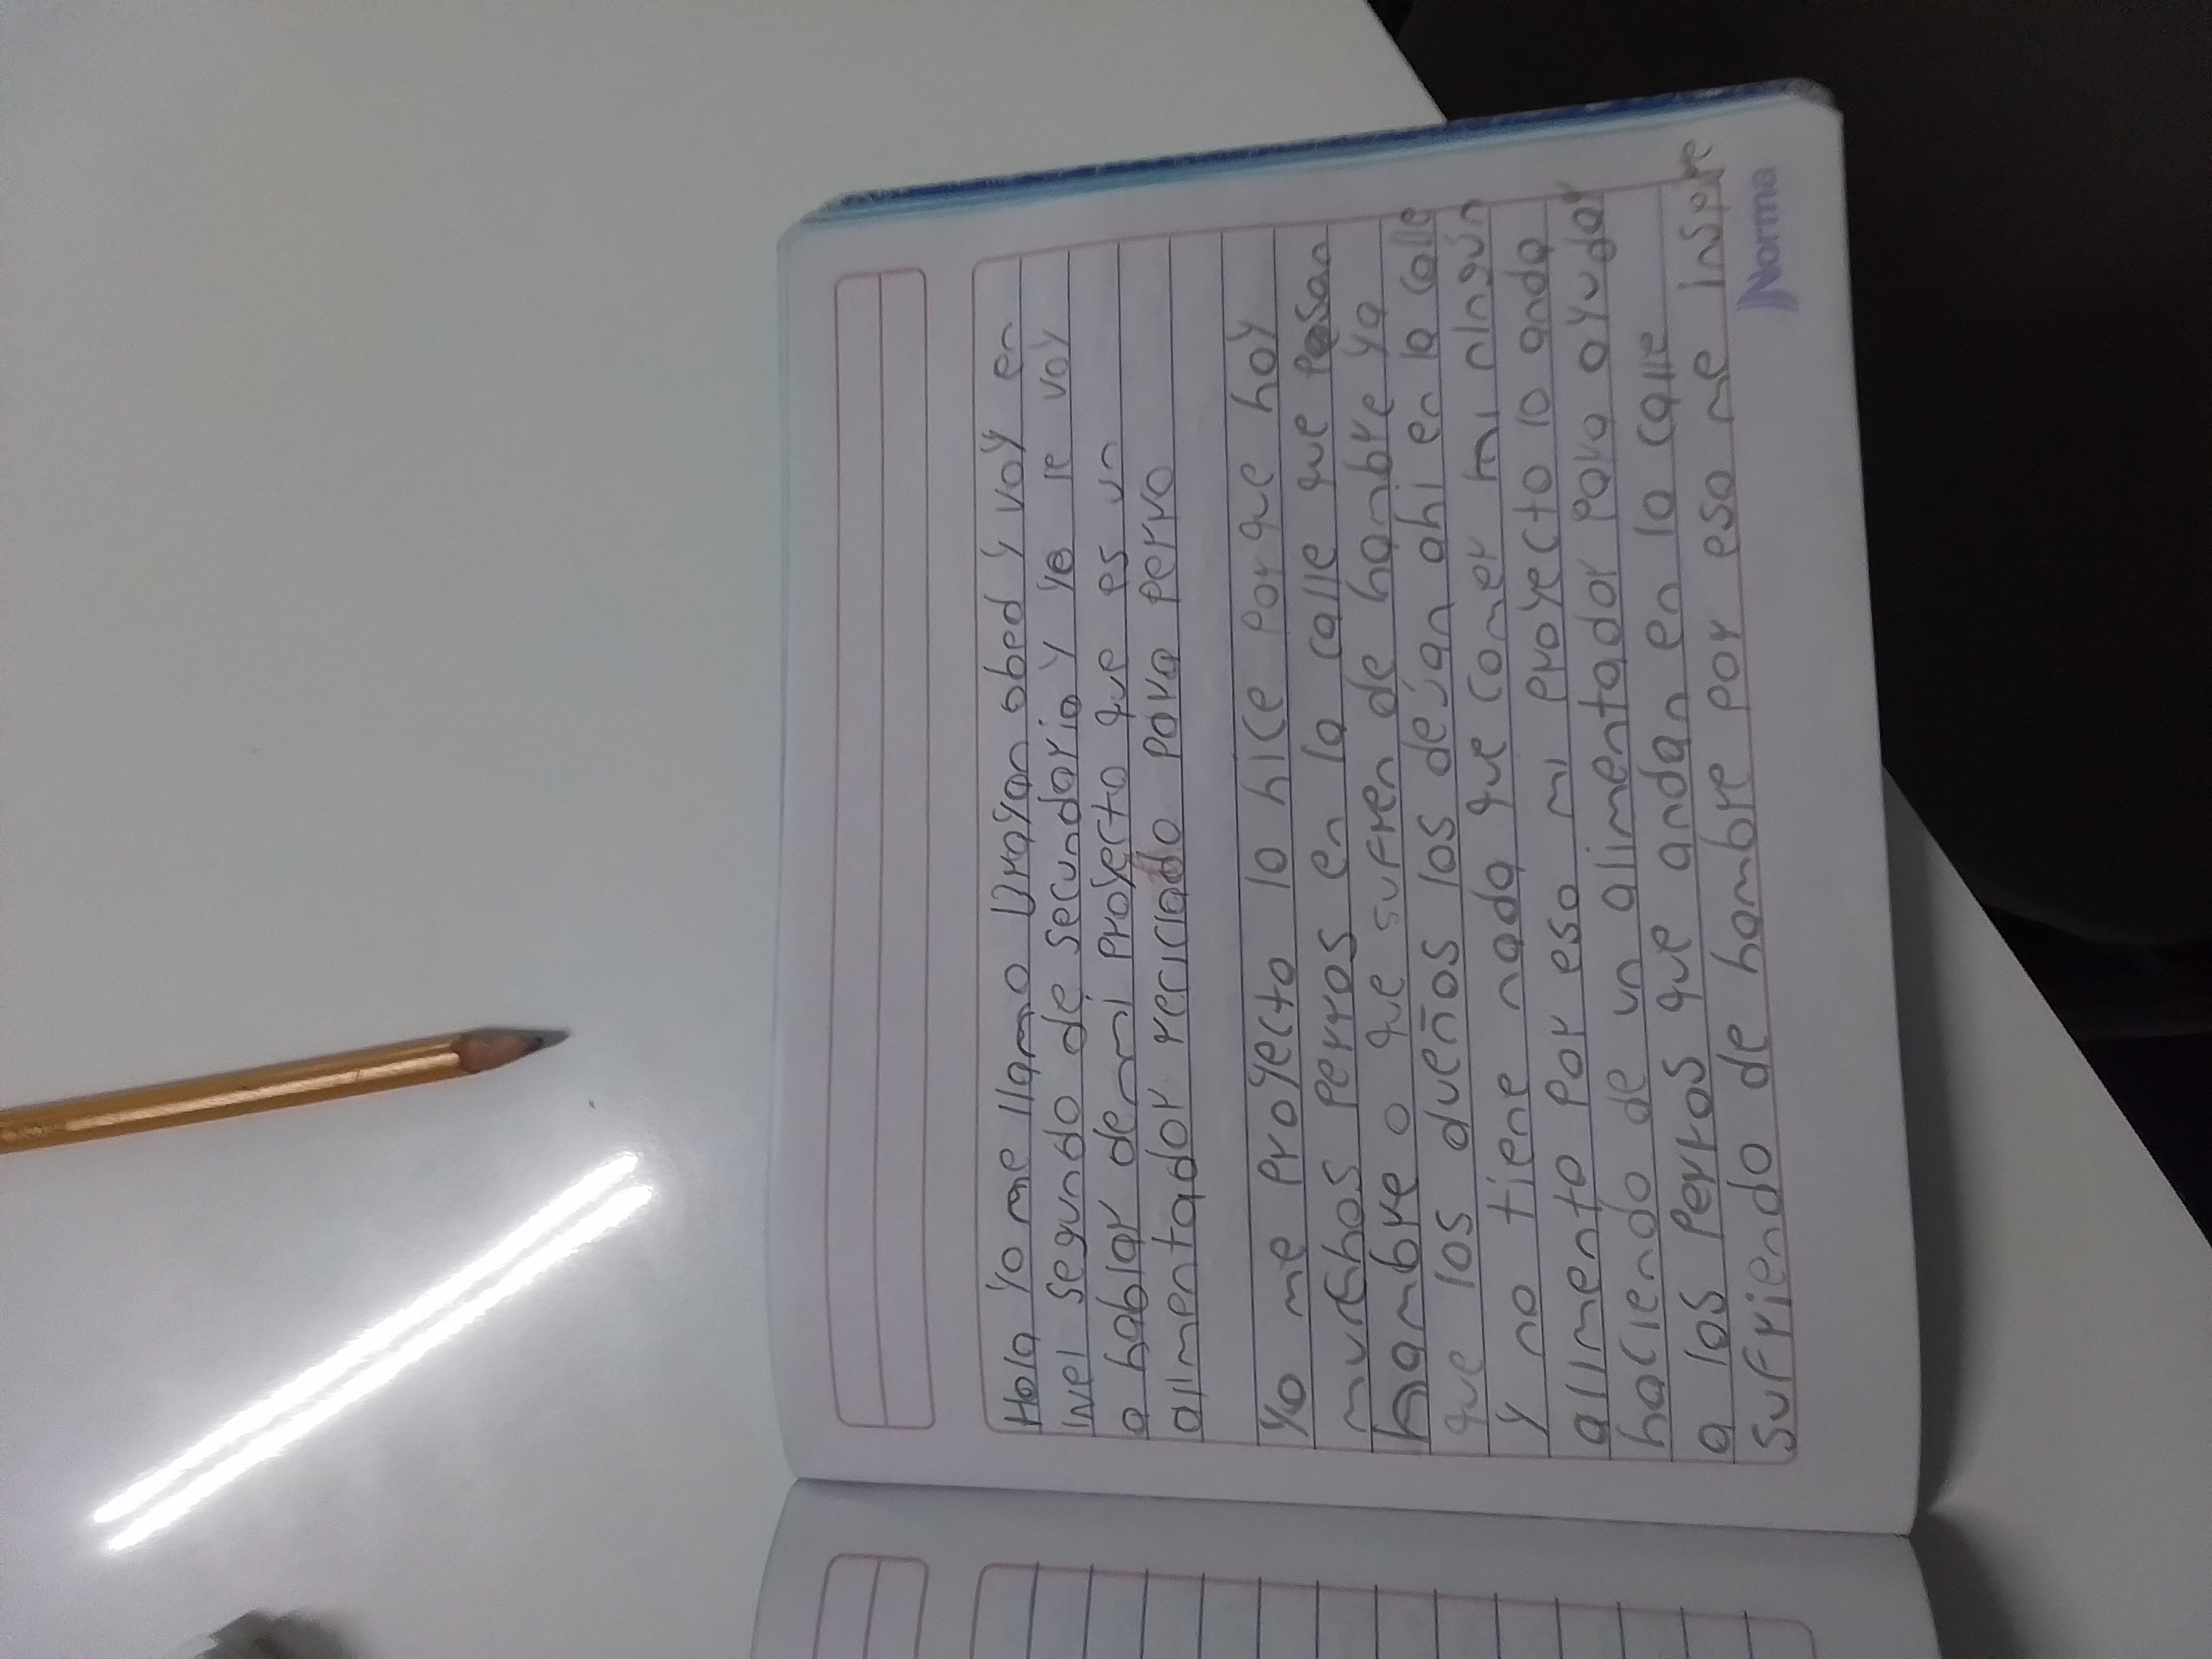 Hola Yo me llamo Brayan obed y voy en
wel segundo de secundaria y ye le voy
a hablar de mi proyecto que es un
alimentador reciclado para perro
Yo me proyecto lo hice porque hoy
muchos perros en la calle que pasan
hambre o que sufren de hanbre ya
que los dueños los dejan ahi en la calle
y no tiene nada que comer mi ningún
alimento Por eso mi proyecto lo anda
haciendo de un alimentador para ayudar
a los perros que andan en la calle
sufriendo de hambre por eso me inspire
Norma